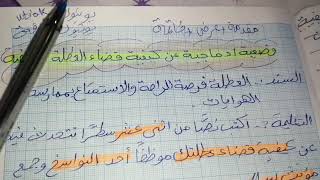 مقدمة + عرض + خاتمة
وضعية ادماجية عن كيفية قضاء العطلة
السند: العطلة فرصة للراحة والاستمتاع بممارسة
الهوايات.
التعليمة: اكتب نصا من اثني عشر سطرا تتحدث فيه
عن كيفية قضاء عطلتك موظفا أحد النواسخ وجمع